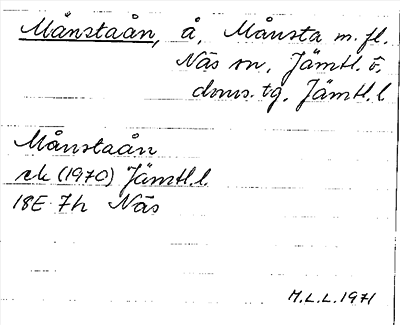 Månstaån, å, Månsta m. fl.
Näs sn, Jämtl. ö.
doms. tg, Jämtl. l
Månstaån
ek (1970) Jämtl. l.
18E 7h Näs
M.L.L. 1971